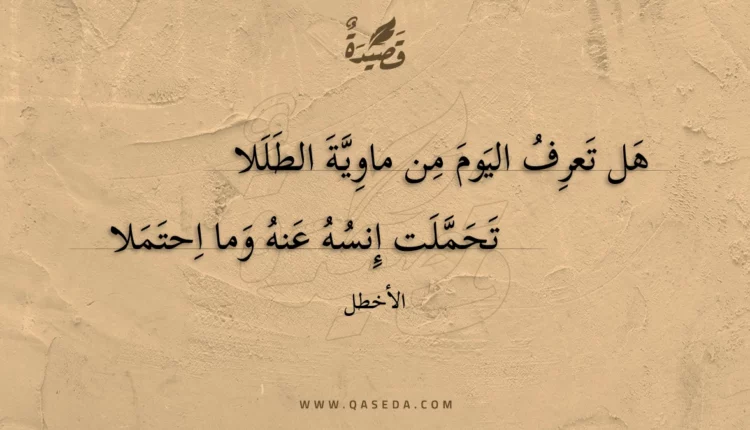 قَصِيدَةٌ
هَل تَعرِفُ اليَومَ مِن ماوِيَّةَ الطَلَلا
تَحَمَّلَت إِنسُهُ عَنهُ وَما اِحتَمَلا
الأخطل
WWW.QASEDA.COM